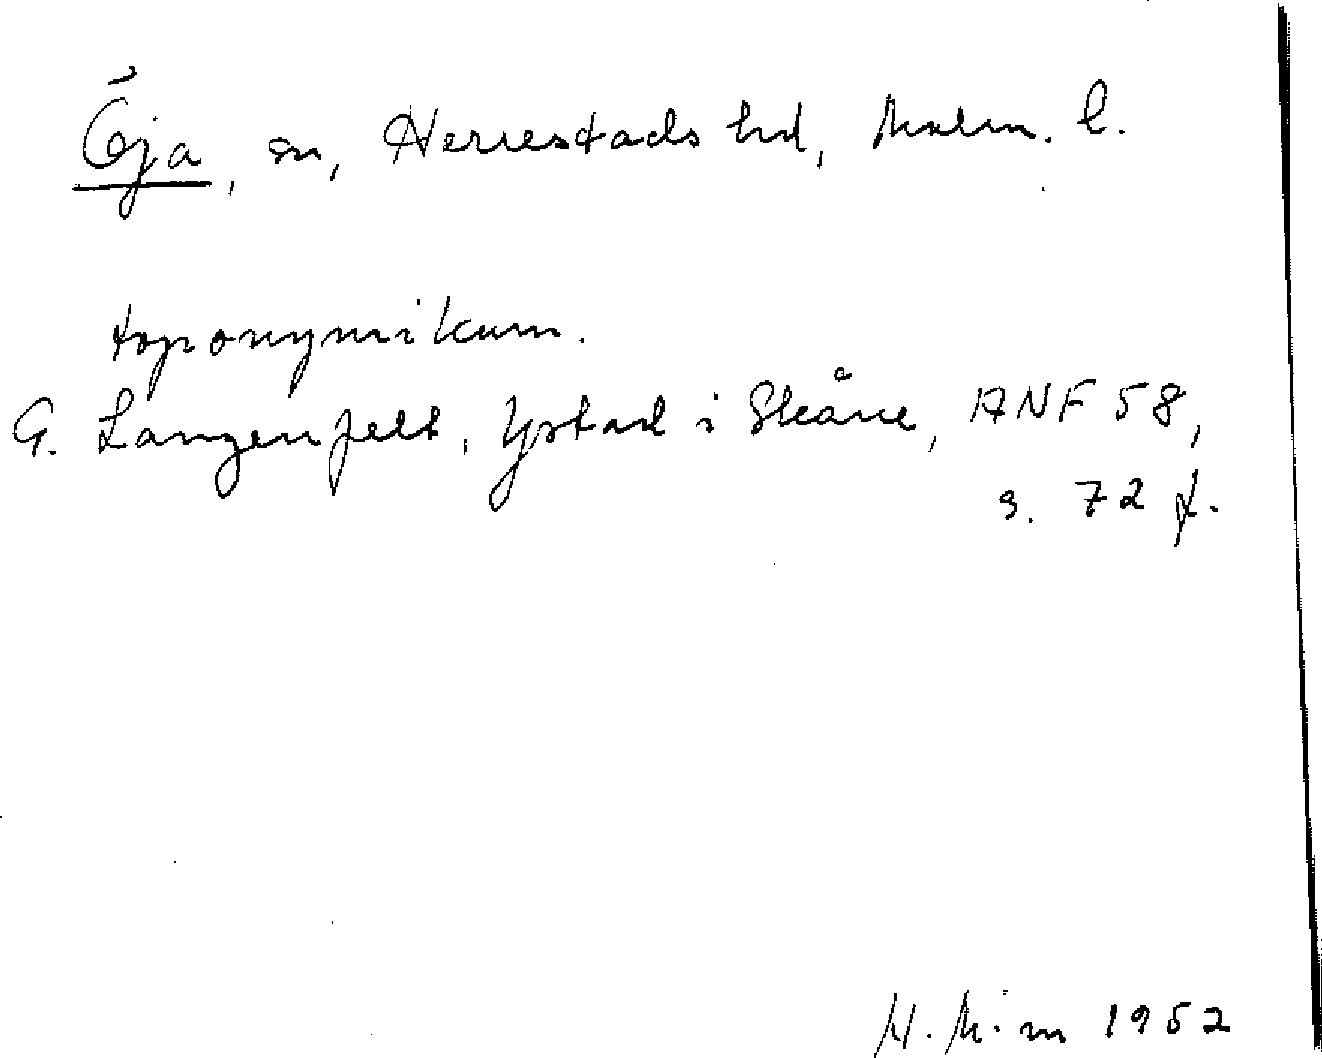 Öja, sn, Herrestads hd, Malm. l.
toponymikum.
G. Langenfelt, Ystad i Skåne, ANF 58,
s. 72 f.
1952